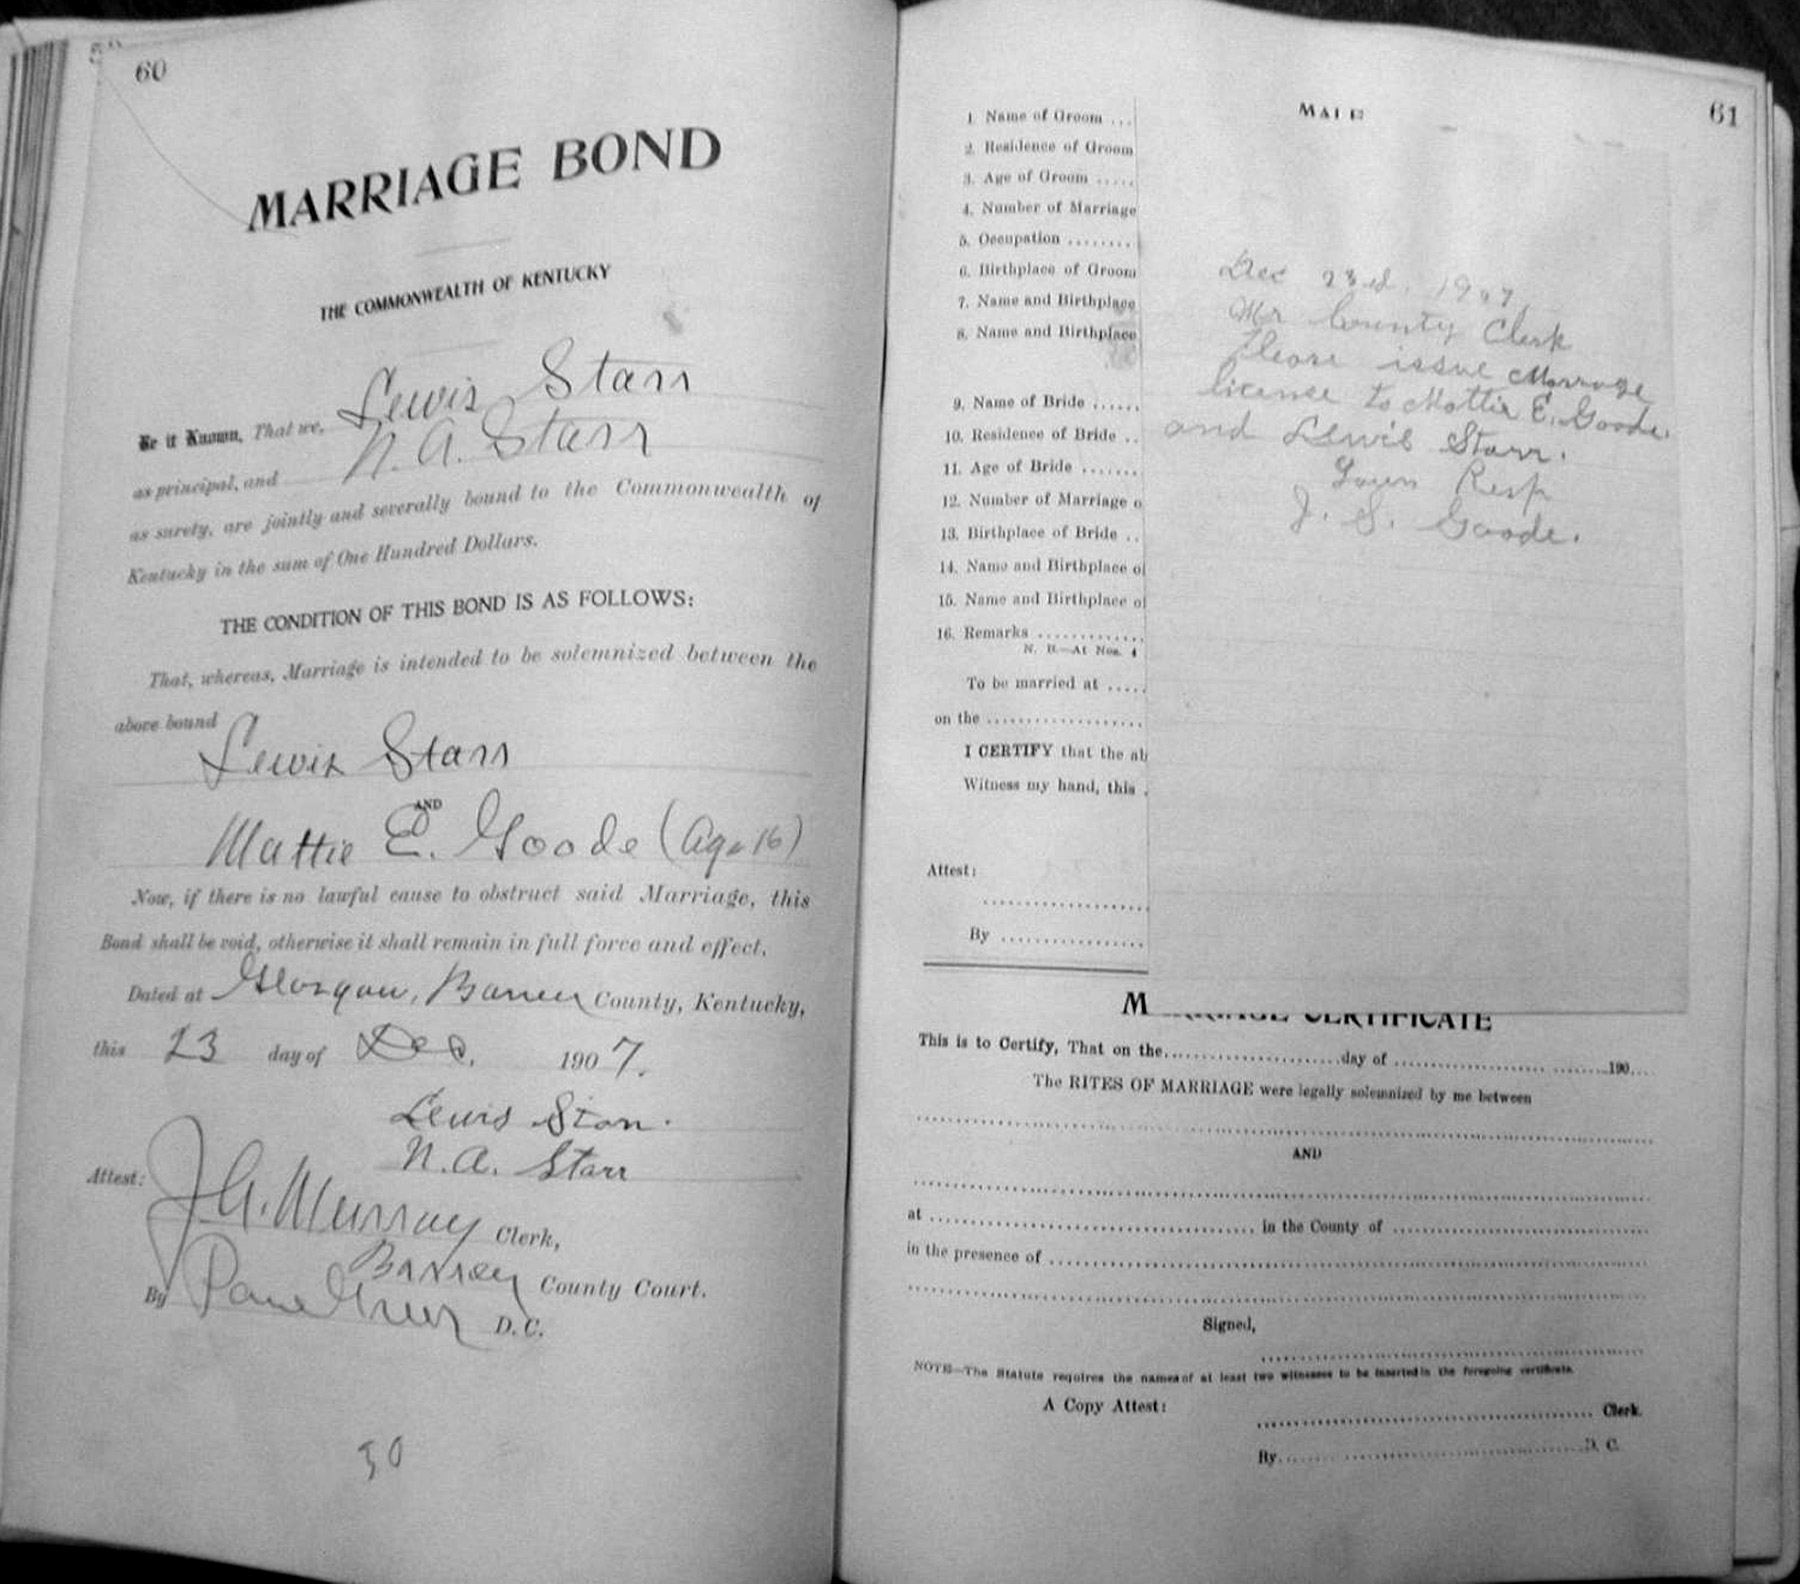 60
MARRIAGE BOND
THE COMMONWEALTH OF KENTUCKY
Be it Known, That we, Lewis Starr
as principal, and N. A. Starr
as surety, are jointly and severally bound to the Commonwealth of
Kentucky in the sum of One Hundred Dollars.
THE CONDITION OF THIS BOND IS AS FOLLOWS:
That, whereas, Marriage is intended to be solemnized between the
above bound
Lewis Starr
AND
Mattie E. Goode (Age 16)
Now, if there is no lawful cause to obstruct said Marriage, this
Bond shall be void, otherwise it shall remain in full force and effect.
Dated at Glasgow, Barren County, Kentucky,
this 23 day of Dec. 1907.
Lewis Starr.
N. A. Starr
Attest:
J. A. Murray Clerk,
Barren County Court.
By D. C.
30
61
1. Name of Groom ...
2. Residence of Groom
3. Age of Groom .....
4. Number of Marriage
5. Occupation ........
6. Birthplace of Groom
7. Name and Birthplace
8. Name and Birthplace
9. Name of Bride ......
10. Residence of Bride ..
11. Age of Bride .......
12. Number of Marriage o
13. Birthplace of Bride ..
14. Name and Birthplace of
15. Name and Birthplace of
16. Remarks .............
N. B.—At Nos. 4
To be married at .....
on the ...................
I CERTIFY that the ab
Witness my hand, this .
Attest:
By .................
Dec 23rd. 1907,
Mr County Clerk
Please issue Marrage
licence to Mattie E. Goode.
and Lewis Starr.
Yours Resp
J. S. Goode.
MARRIAGE CERTIFICATE
This is to Certify, That on the......................day of ............................190....
The RITES OF MARRIAGE were legally solemnized by me between
AND
at ........................................ in the County of ................................
in the presence of ................................................................
Signed,
NOTE—The Statute requires the names of at least two witnesses to be inserted in the foregoing certificate.
A Copy Attest:
........................................ Clerk.
By........................................D. C.